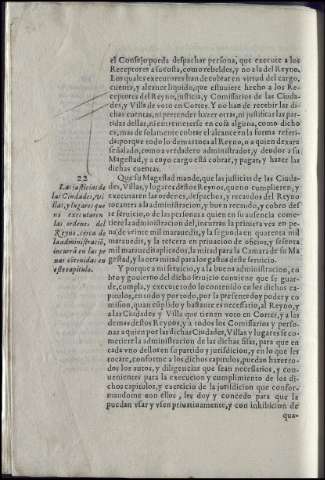 el Consejo pueda despachar persona, que execute a los
Receptores a su costa, como rebeldes, y no a la del Reyno.
Los quales executores han de cobrar en virtud del cargo,
cuenta, y alcance liquido, que estuuiere hecho a los Re-
ceptores del Reyno, justicia, y Comissarios de las Ciuda-
des, y Villa de voto en Cortes. Y no han de recebir las di-
chas cuentas, ni pretender hazer otras, ni justificar las par-
tidas dellas, ni entremeterse en cosa alguna, como dicho
es, mas de solamente cobrar el alcance en la forma referi-
da: porque todo lo demas toca al Reyno, o a quien dexare
señalado, como a verdadero administrador, y deudor a su
Magestad, y a cuyo cargo està cobrar, y pagar, y hazer las
dichas cuentas.
22
Las justicias de
las Ciudades, vi-
llas, y lugares que
no executaren
las ordenes del
Reyno, cerca de
la administraciõ,
incurrã en las pe
nas contenidas en
este capitulo.
Que su Magestad mande, que las justicias de las Ciuda-
des, Villas, y lugares destos Reynos, que no cumplieren, y
executaren las ordenes, despachos, y recaudos del Reyno
tocantes a la administracion, y buen recaudo, y cobro des-
te seruicio, o de las personas a quien en su ausencia come-
tiere la administracion del, incurran la primera vez en pe-
na de veinte mil marauedis, y la segunda de quarenta mil
marauedis, y la tercera en priuacion de oficio, y sesenta
mil marauedis aplicados, la mitad para la Camara de su Ma
gestad, y la otra mitad para los gastos deste seruicio.
Y porque a mi seruicio, y a la buena administracion, co-
bro y gouierno del dicho seruicio conuiene que se guar-
de, cumpla, y execute todo lo contenido en los dichos ca-
pitulos, en todo y por todo, por la presente doy poder y co-
mission, quan cũplido y bastante es necessario, al Reyno, y
a las Ciudades y Villa que tienen voto en Cortes, y a las
demas destos Reynos, y a todos los Comissarios y perso-
nas a quien por las dichas Ciudades, Villas y lugares se co-
metiere la administracion de las dichas sisas, para que en
cada vno dellos en su partido y juridicion, y en lo que les
tocare, conforme a los dichos capitulos, puedan hazer to-
dos los autos, y diligencias que sean necessarios, y con-
uenientes para la execucion y cumplimiento de los di-
chos capitulos, y exercicio de la juridicion que confor-
mandome con ellos, les doy y concedo para que la
puedan vsar y vsen priuatiuamente, y con inhibicion de
qua-